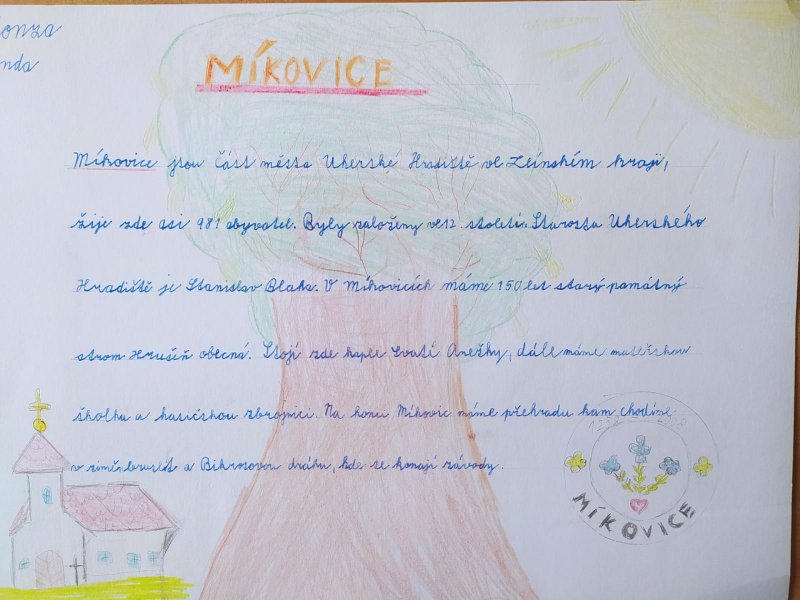 onza
nda
MÍKOVICE
Míkovice jsou část města Uherské Hradiště ve Zlínském kraji,
žije zde asi 981 obyvatel. Byly založeny ve 12. století. Starosta Uherského
Hradiště je Stanislav Blaha. V Míkovicích máme 150 let starý památný
strom Hrušeň obecná. Stojí zde kaple Svaté Anežky, dále máme mateřskou
školku a hasičskou zbrojnici. Na konci Míkovic máme přehradu kam chodíme
v zimě bruslit a Bikrosovou dráhu, kde se konají závody.
MÍKOVICE